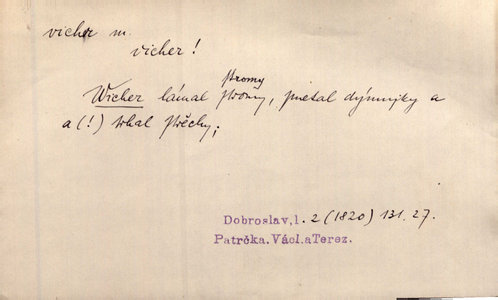 vicher m.
vicher!
stromy
Wicher lámal stromy, metal dýmnjky a
a (!) trhal střěchy;
Dobroslav,1. 2 (1820) 131. 27.
Patrčka.Václ.aTerez.